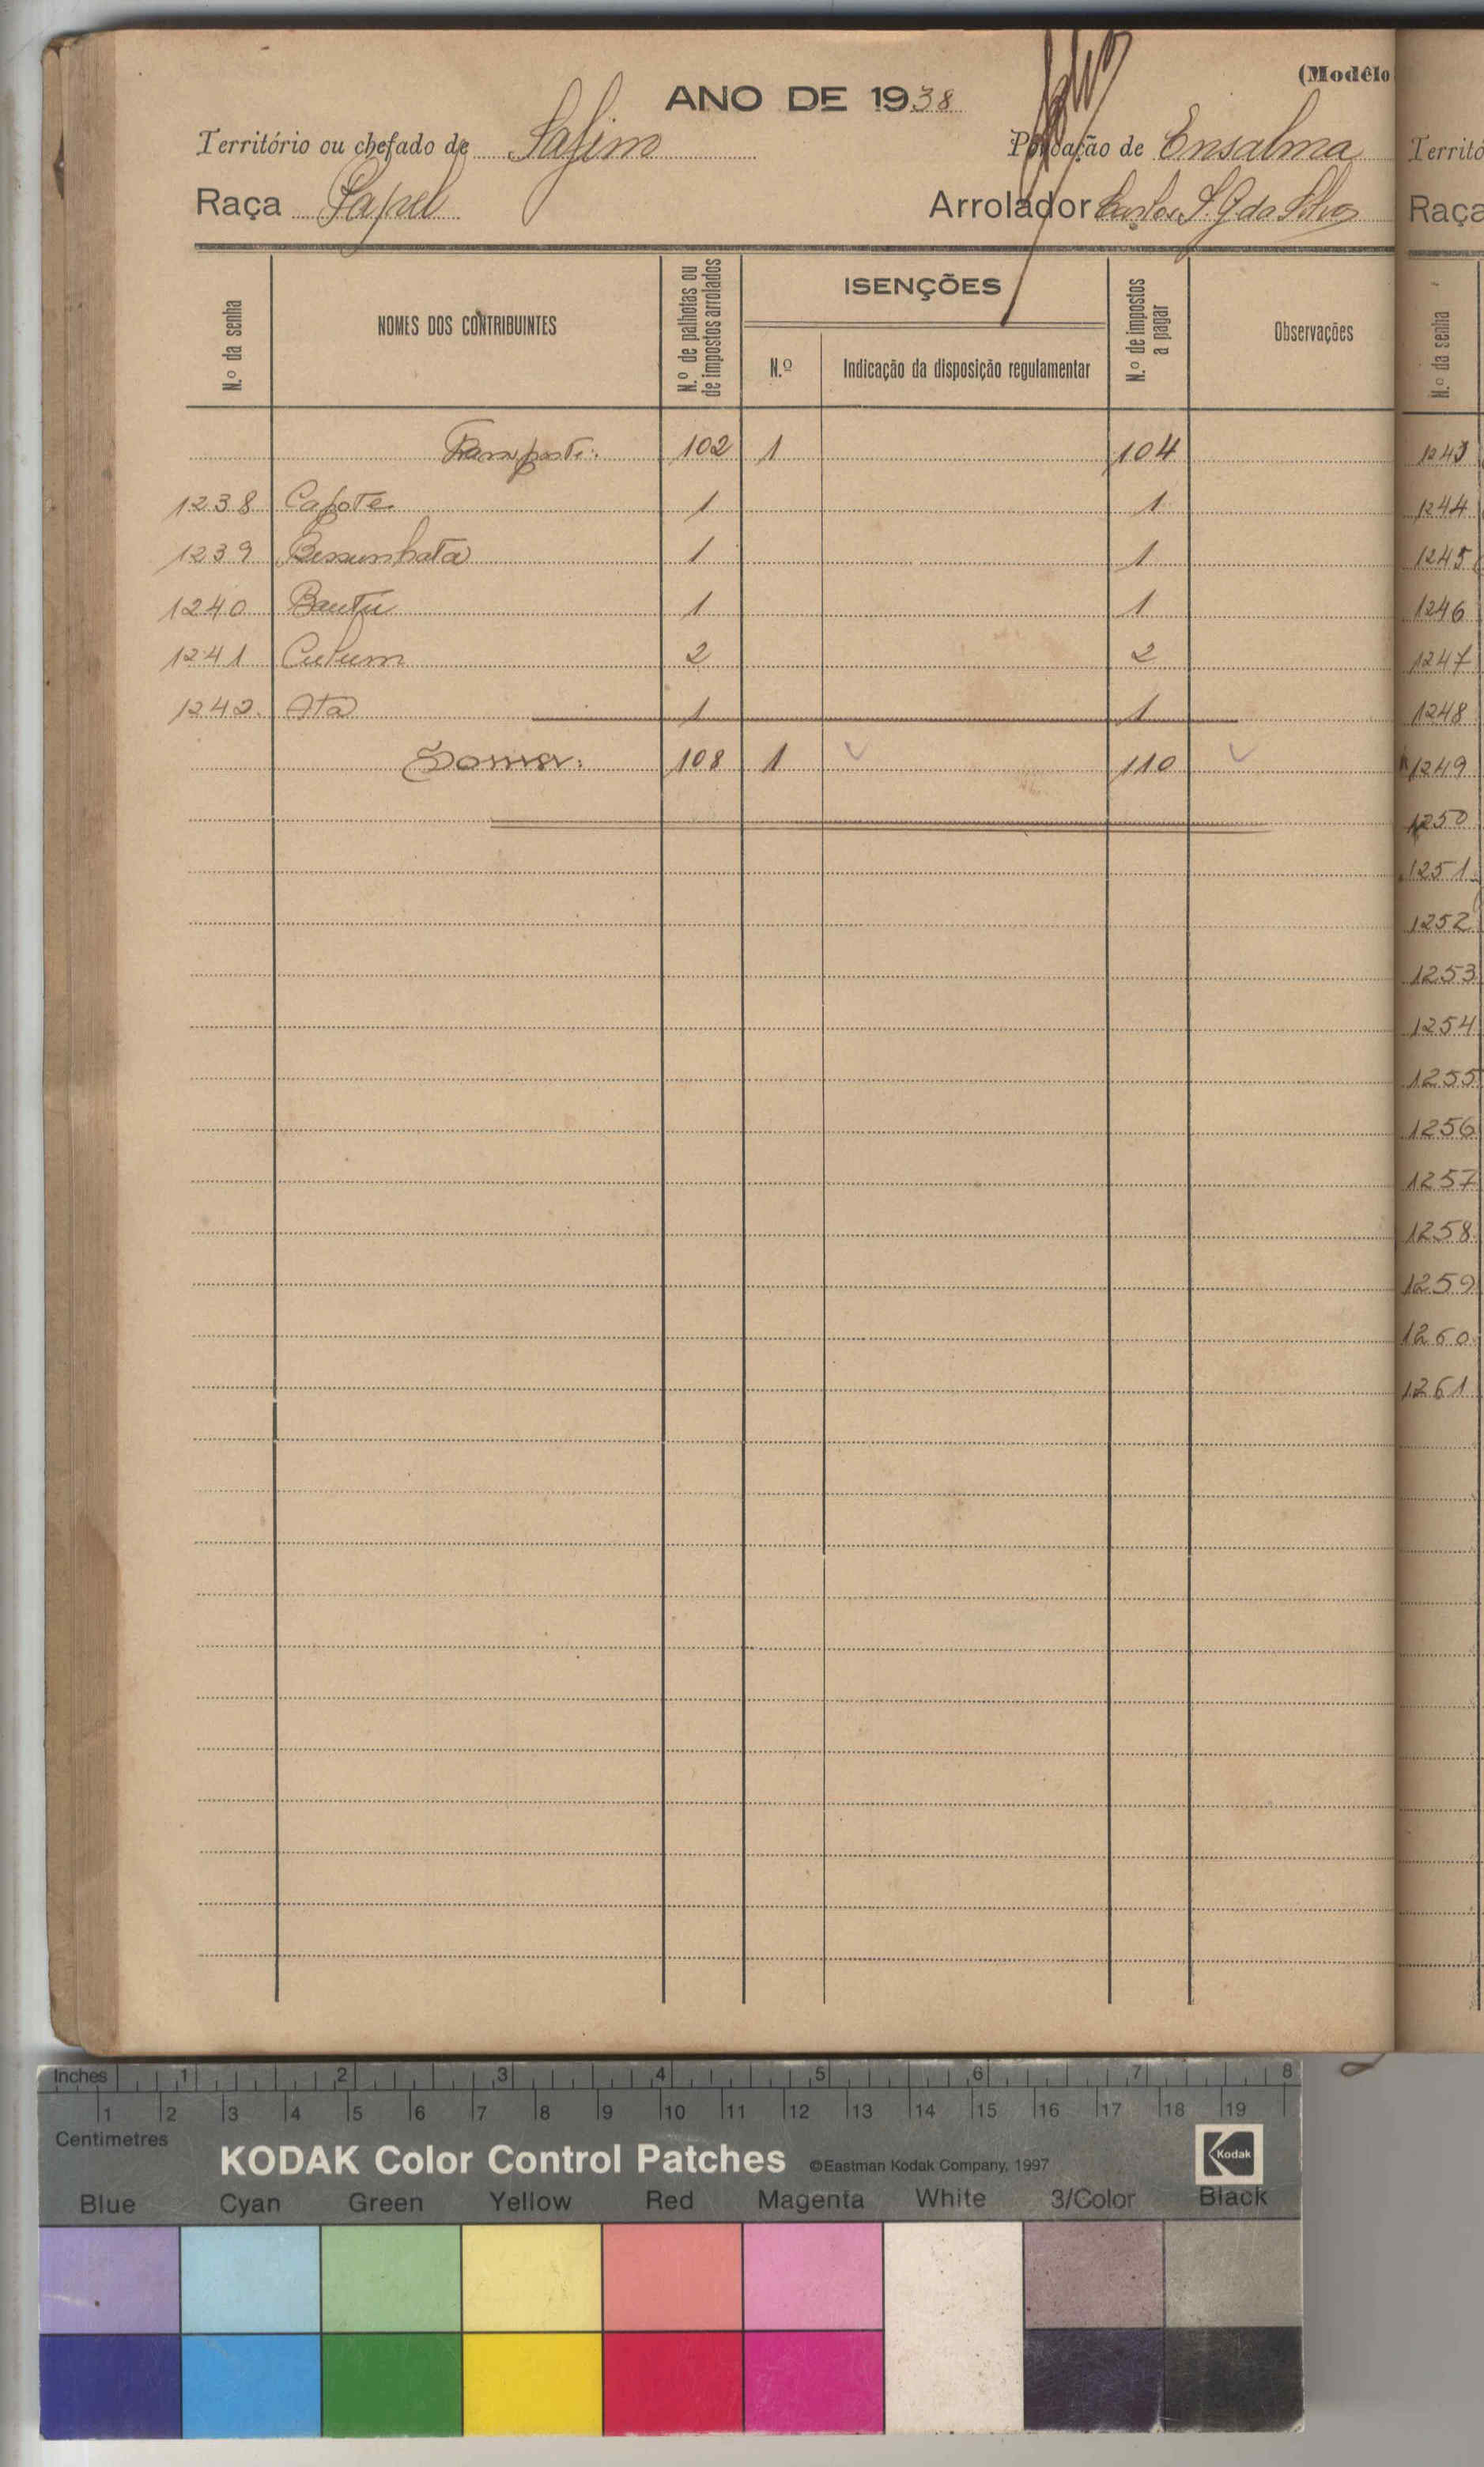 (Modêlo
ANO DE 1938
Território ou chefado de Safim
Povoação de Ensalma
Raça Papel
Arrolador Carlos S. G da Silva
N.º da senha
NOMES DOS CONTRIBUINTES
N.º de palhotas ou de impostos arrolados
ISENÇÕES
N.º
Indicação da disposição regulamentar
N.º de impostos a pagar
Observações
Transporte: 102 1 104
1238 Capote 1 1
1239 Bessunhata 1 1
1240 Bautu 1 1
1241 2 2
1242. Ata 1 1
Soma: 108 1 110
Territó
Raça
N.º da senha
1243
1244
1245
1246
1247
1248
1249
1250
1251
1252
1253
1254
1255
1256
1257
1258
1259
1260
1261
Inches 1 2 3 4 5 6 7 8
1 2 3 4 5 6 7 8 9 10 11 12 13 14 15 16 17 18 19
Centimetres
KODAK Color Control Patches ©Eastman Kodak Company, 1997 Kodak
Blue Cyan Green Yellow Red Magenta White 3/Color Black